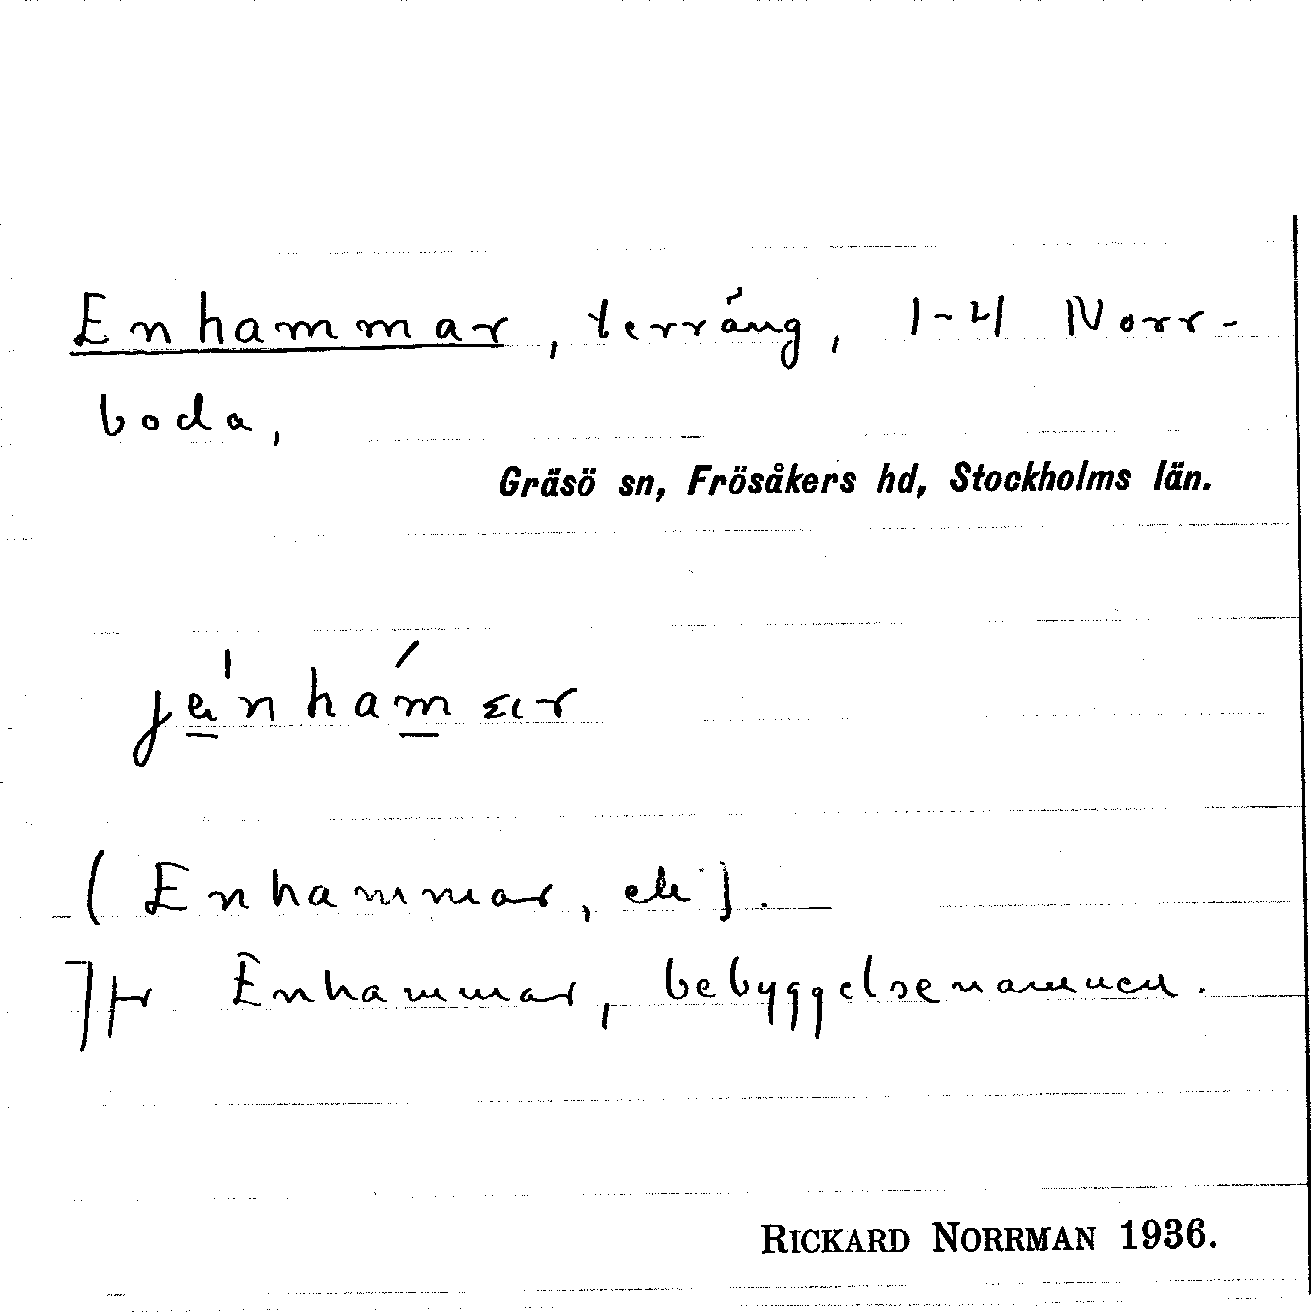 Enhammar, terräng, 1-4 Norr-
boda,
Gräsö sn, Frösåkers hd, Stockholms län.
(Enhammar, ek).
Jfr Enhammar, bebyggelsenamnen.
RICKARD NORRMAN 1936.